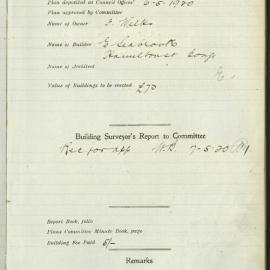 Plan deposited at Council Offices 6-5-1920
Plan approved by Committee
Name of Owner F. Wilks
Name of Builder E. Seabrook
Name of Architect
Value of Buildings to be erected £70
Building Surveyor's Report to Committee
Rec for app W.B. 7-5-20
Report Book, folio
Plans Committee Minute Book, page
Building Fee Paid 5/-
Remarks